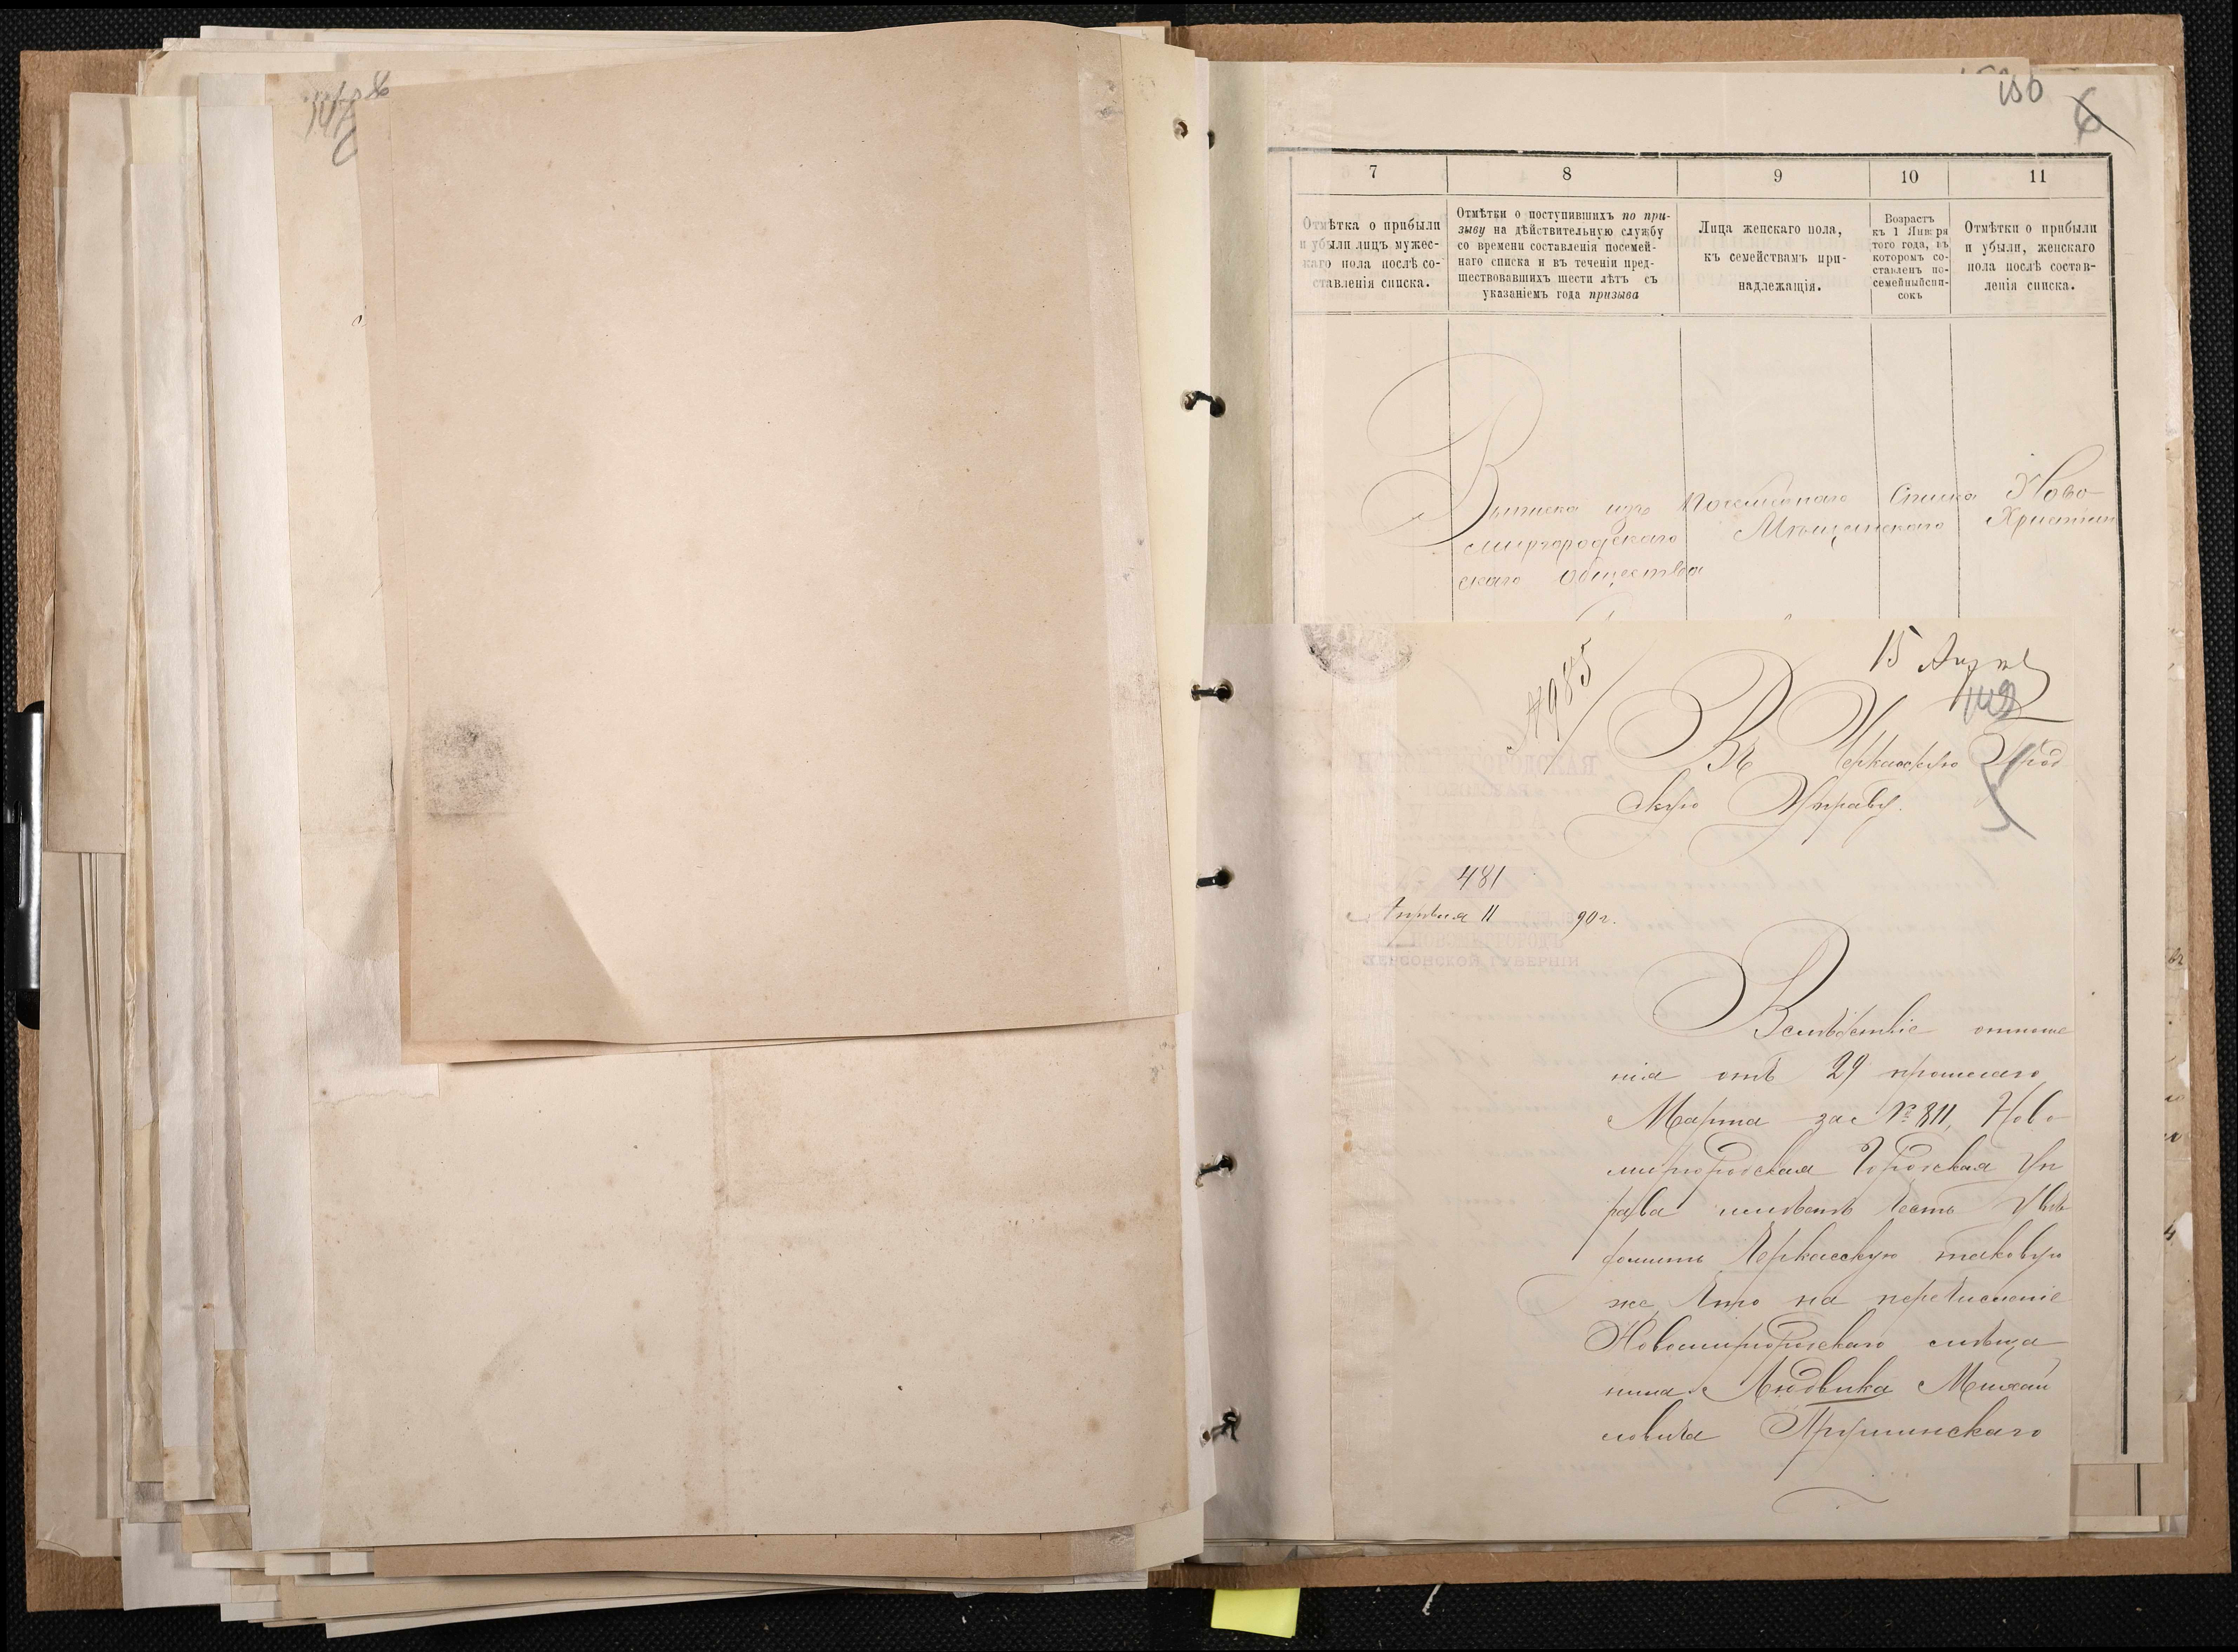 156
6
7
8
9
10
11
Отмѣтка о прибыли
и убыли лицъ мужес-
каго пола послѣ со-
ставленія списка.
Отмѣтки о поступившихъ по при-
зыву на дѣйствительную службу
со времени составленія посемей-
наго списка и въ теченіи пред-
шествовавшихъ шести лѣтъ съ
указаніемъ года призыва
Лица женскаго пола,
къ семействамъ при-
надлежащія.
Возрастъ
къ 1 Января
того года, въ
которомъ со-
ставленъ по-
семейный спи-
сокъ
Отмѣтки о прибыли
и убыли, женскаго
пола послѣ состав-
ленія списка.
Выписка изъ Посемейнаго Списка Ново-
миргородскаго Мѣщанскаго Христіан
скаго Общества
15 Апрѣл
Въ Черкасскую Город
скую Управу.
481
Апрѣля 11 90 г.
НОВОМИРГОРОДЪ
ХЕРСОНСКОЙ ГУБЕРНІИ
Вслѣдствіе отноше
нія отъ 29 прошлаго
Марта за № 811, Ново
миргородская Городская Уп
рава имѣетъ честь увѣ
домить Черкасскую таковую
же, что на перечисленіе
Новомиргородскаго мѣща
нина Людвика Михай
ловича Прушинскаго